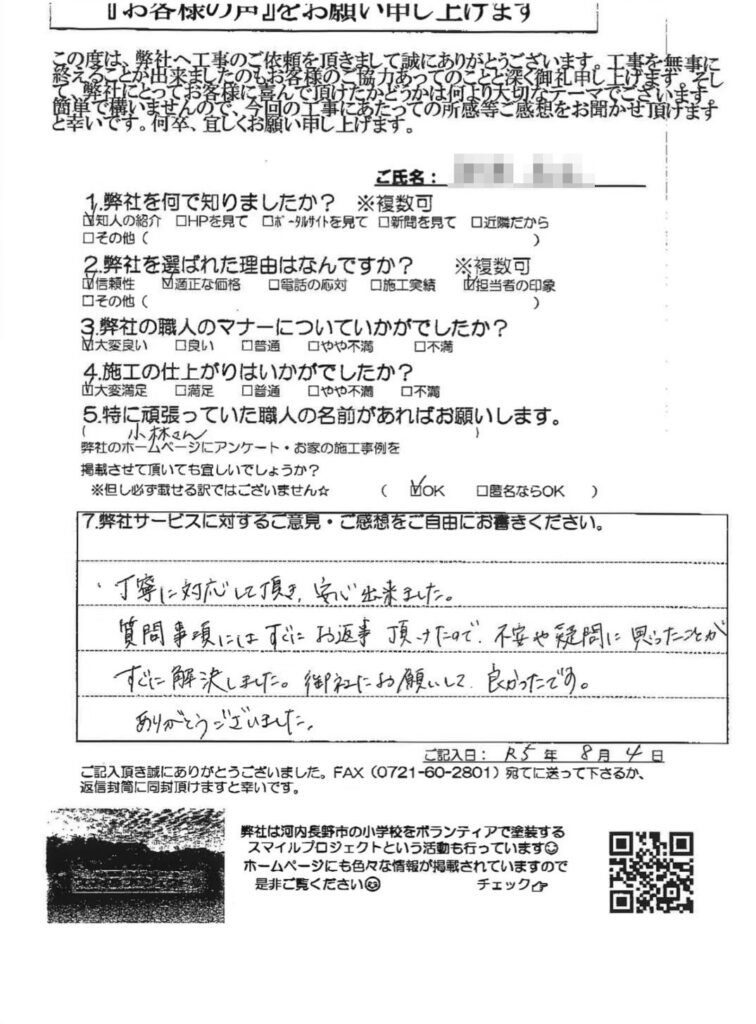 『お客様の声』をお願い申し上げます
この度は、弊社へ工事のご依頼を頂きまして誠にありがとうございます。工事を無事に
終えることが出来ましたのもお客様のご協力あってのことと深く御礼申し上げます。そし
て、弊社にとってお客様に喜んで頂けたかどうかは何より大切なテーマでございます。
簡単で構いませんので、今回の工事にあたっての所感等ご感想をお聞かせ頂けますす
と幸いです。何卒、宜しくお願い申し上げます。
ご氏名：
1.弊社を何で知りましたか？ ※複数可
☑知人の紹介 □HPを見て □ポータルサイトを見て □新聞を見て □近隣だから
□その他（ ）
2.弊社を選ばれた理由はなんですか？ ※複数可
☑信頼性 ☑適正な価格 □電話の応対 □施工実績 ☑担当者の印象
□その他（ ）
3.弊社の職人のマナーについていかがでしたか？
☑大変良い □良い □普通 □やや不満 □不満
4.施工の仕上がりはいかがでしたか？
☑大変満足 □満足 □普通 □やや不満 □不満
5.特に頑張っていた職人の名前があればお願いします。
（ 小林さん ）
弊社のホームページにアンケート・お家の施工事例を
掲載させて頂いても宜しいでしょうか？
※但し必ず載せる訳ではございません☆ （ ☑OK □匿名ならOK ）
7.弊社サービスに対するご意見・ご感想をご自由にお書きください。
・丁寧に対応して頂き、安心出来ました。
質問事項にはすぐにお返事頂けたので、不安や疑問に思ったことが
すぐに解決しました。御社にお願いして、良かったです。
ありがとうございました。
ご記入日： R5 年 8 月 4 日
ご記入頂き誠にありがとうございました。FAX（0721-60-2801）宛てに送って下さるか、
返信封筒に同封頂けますと幸いです。
弊社は河内長野市の小学校をボランティアで塗装する
スマイルプロジェクトという活動も行っています☺
ホームページにも色々な情報が掲載されていますので
是非ご覧ください☺ チェック☞